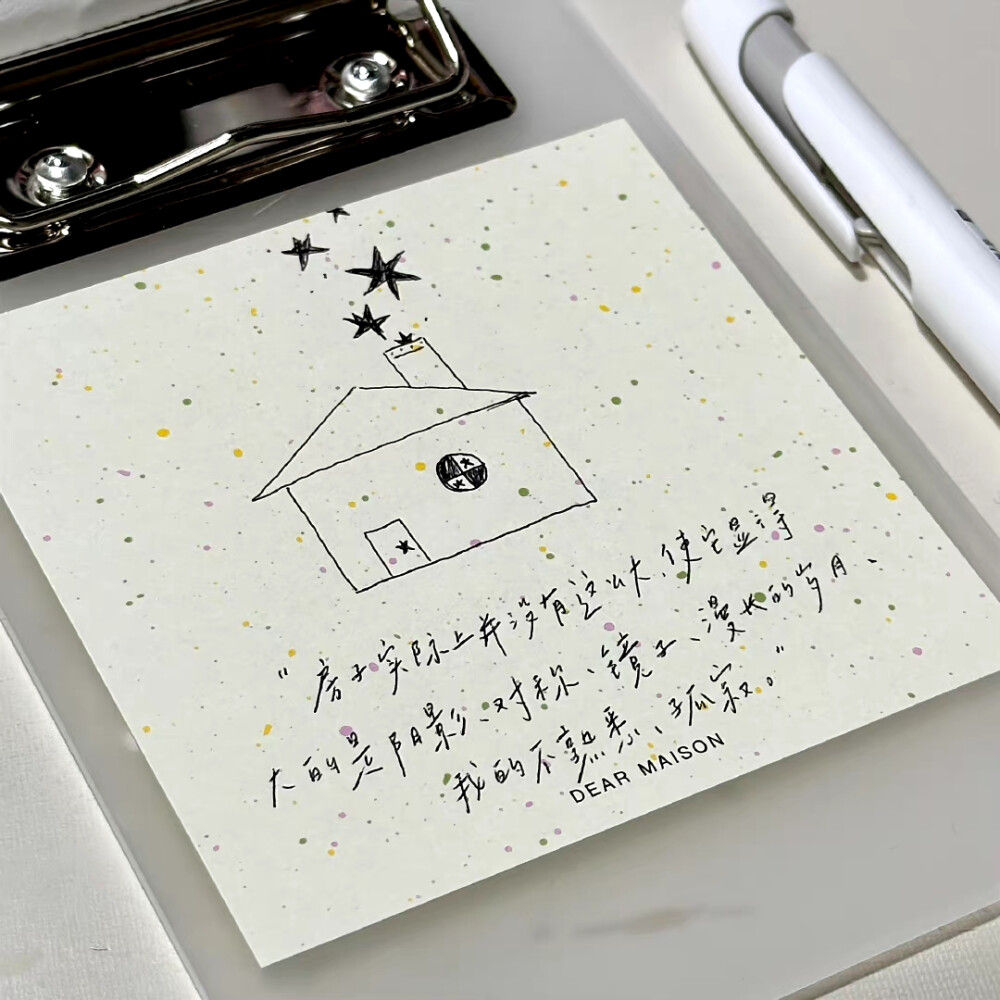 "房子实际上并没有这么大,使它显得
大的是阴影、对称、镜子、漫长的岁月、
我的不熟悉、孤寂。"
DEAR MAISON